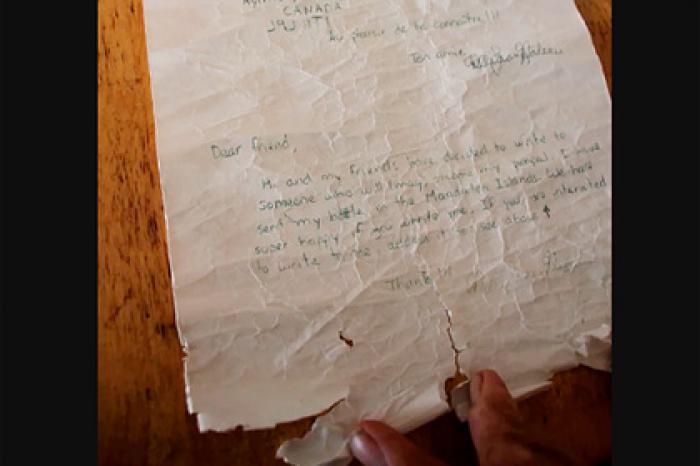 CANADA
J9J 1T1
Au plaisir de te connaître!!!
Ton amie,
Dear friend,
Me and my friends have decided to write to
someone who will may, become my penpal. I have
sent my bottle in the Magdalen Islands. We have
super happy if you wrote me. If you are interated
to write to me, adress it to: see above ↑
Thank